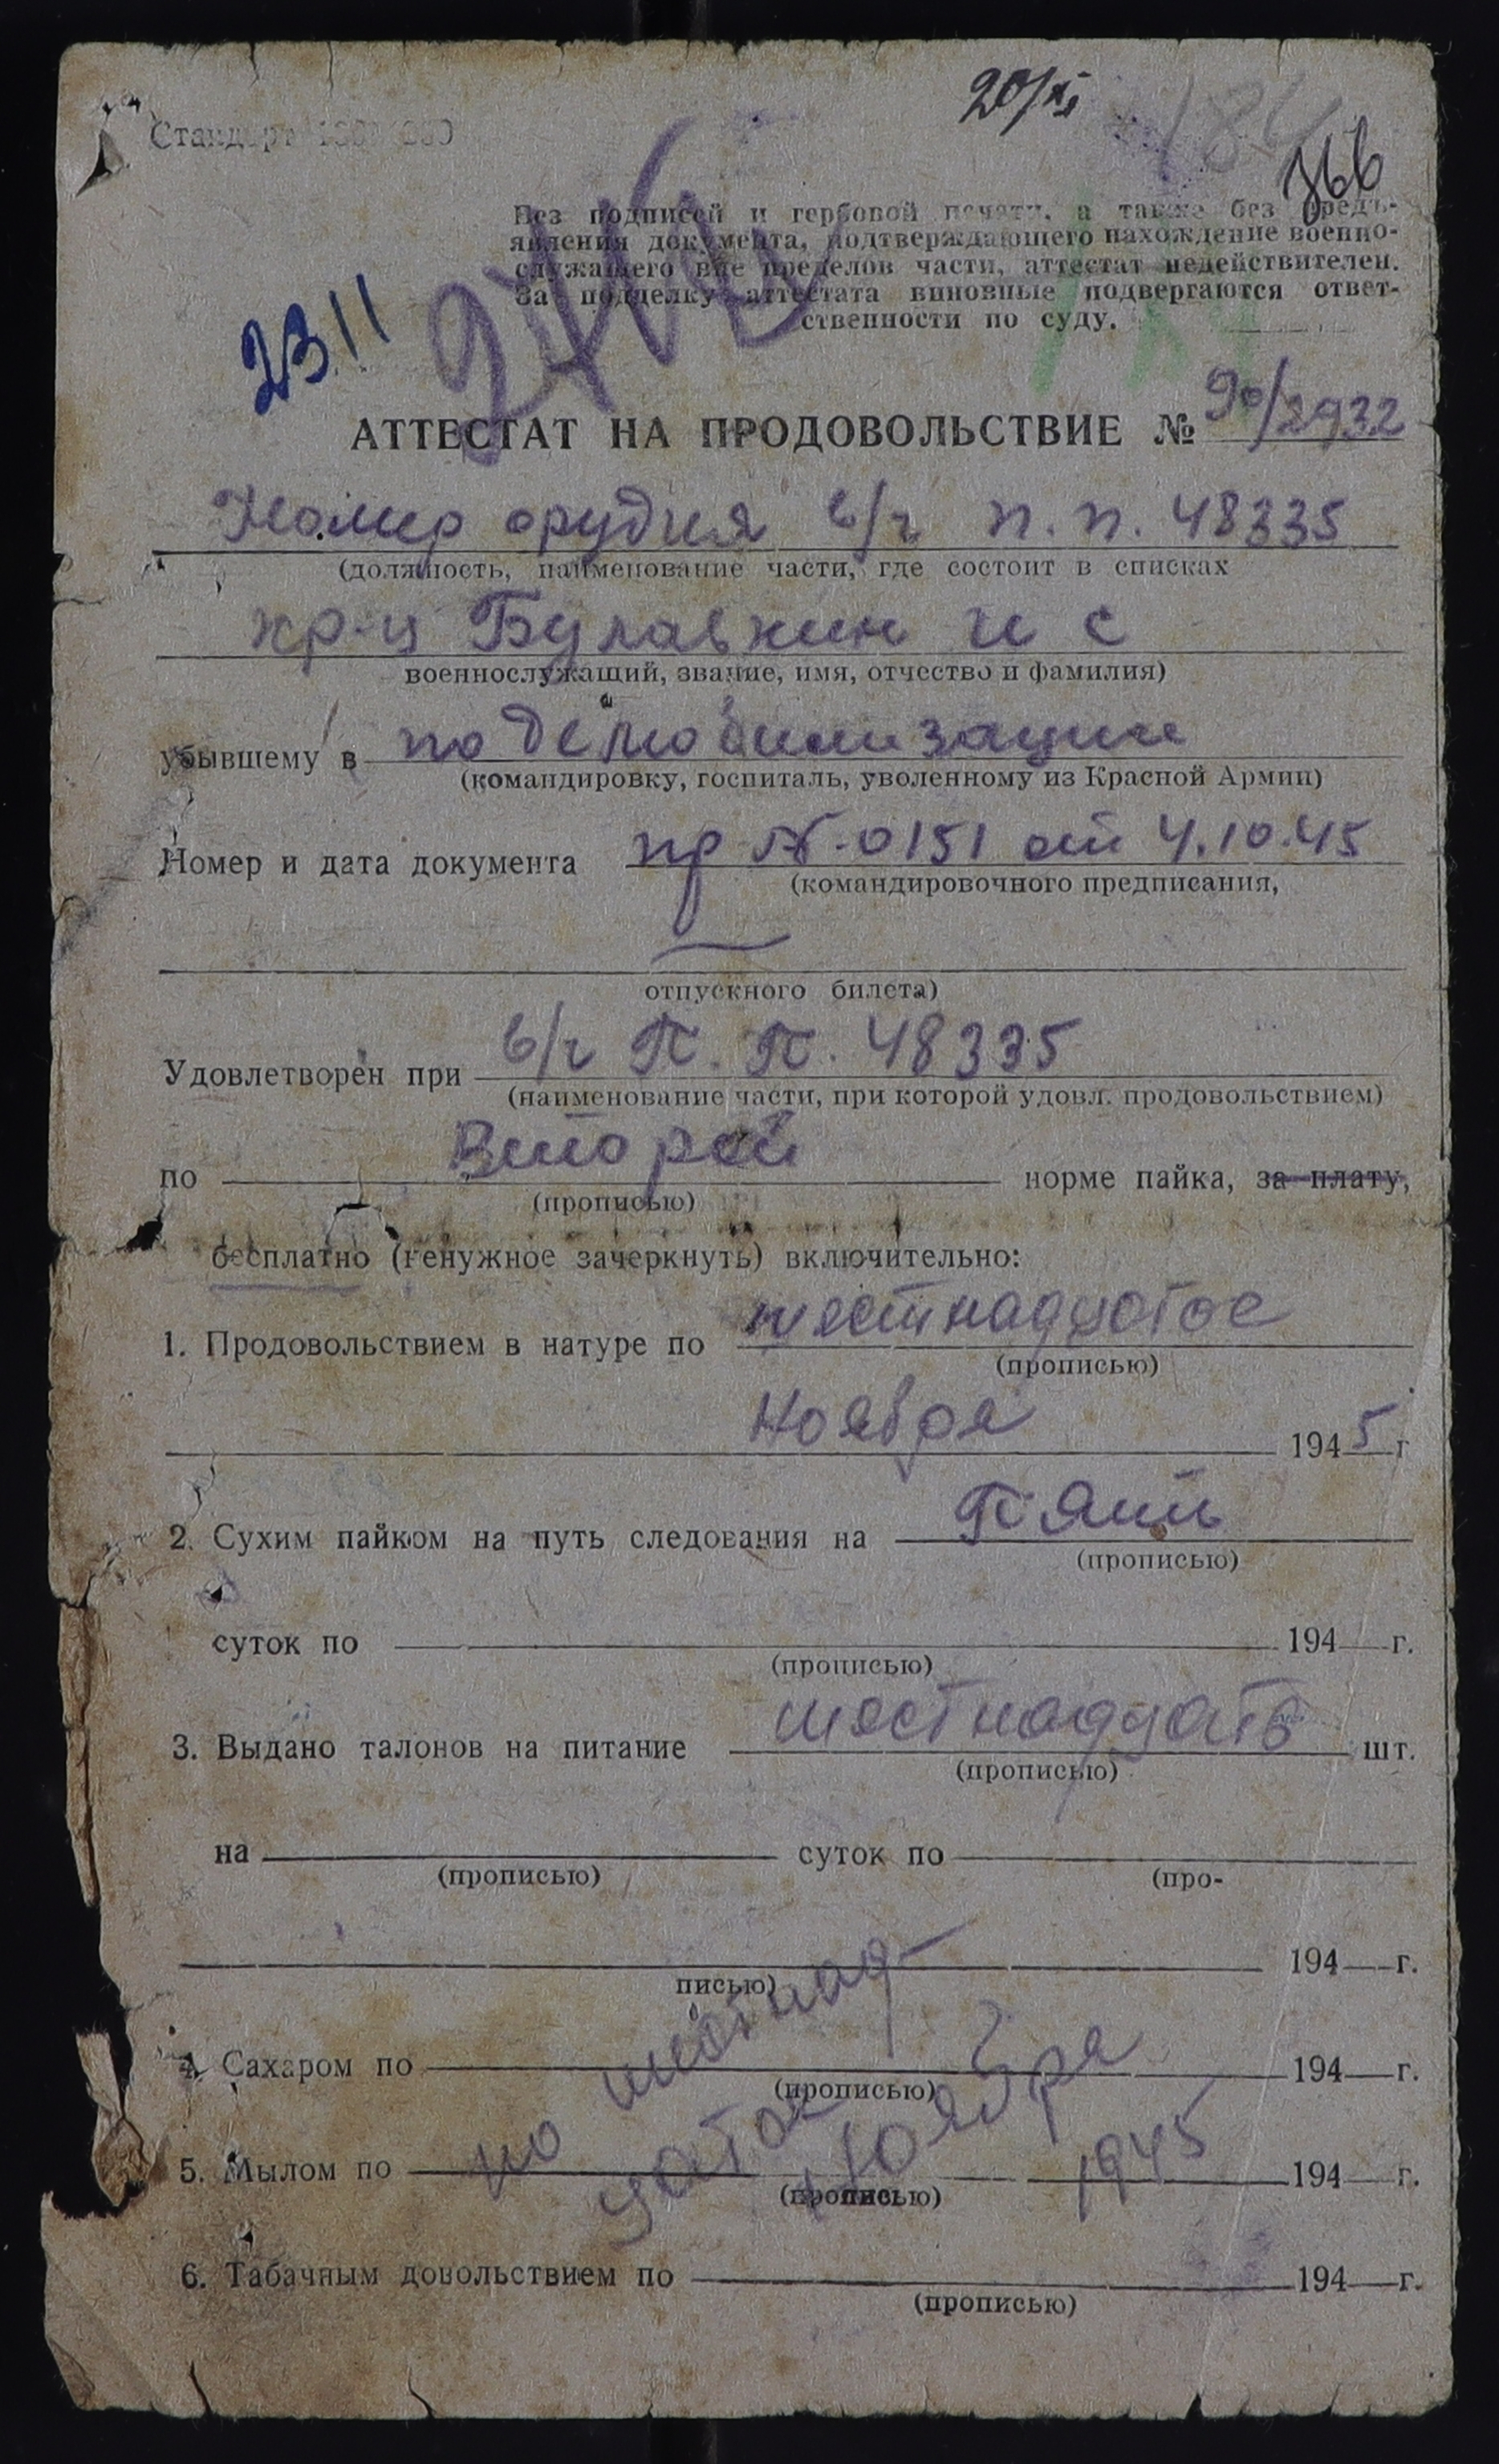 20/XI
366
Стандарт
Без подписей и гербовой печати, а также без предъ-
явления документа, подтверждающего нахождение военно-
служащего вне пределов части, аттестат недействителен.
За подделку аттестата виновные подвергаются ответ-
ственности по суду.
2311
АТТЕСТАТ НА ПРОДОВОЛЬСТВИЕ № 90/2932
Номер орудия в/ч п.п. 48335
(должность, наименование части, где состоит в списках
кр-ц Булавкин И С
военнослужащий, звание, имя, отчество и фамилия)
убывшему в по демобилизации
(командировку, госпиталь, уволенному из Красной Армии)
Номер и дата документа пр №-0151 от 4.10.45
(командировочного предписания,
отпускного билета)
Удовлетворен при в/ч П.П. 48335
(наименование части, при которой удовл. продовольствием)
по Второй норме пайка, за плату,
(прописью)
бесплатно (ненужное зачеркнуть) включительно:
1. Продовольствием в натуре по шестнадцатое
(прописью)
Ноября 1945 г
2. Сухим пайком на путь следования на Пять
(прописью)
суток по 194 г.
(прописью)
3. Выдано талонов на питание шестнадцать шт.
(прописью)
на суток по
(прописью) (про-
194 г.
писью)
по шестнад-
цатое Ноября 1945
4. Сахаром по 194 г.
(прописью)
5. Мылом по 194 г.
(прописью)
6. Табачным довольствием по 194 г.
(прописью)